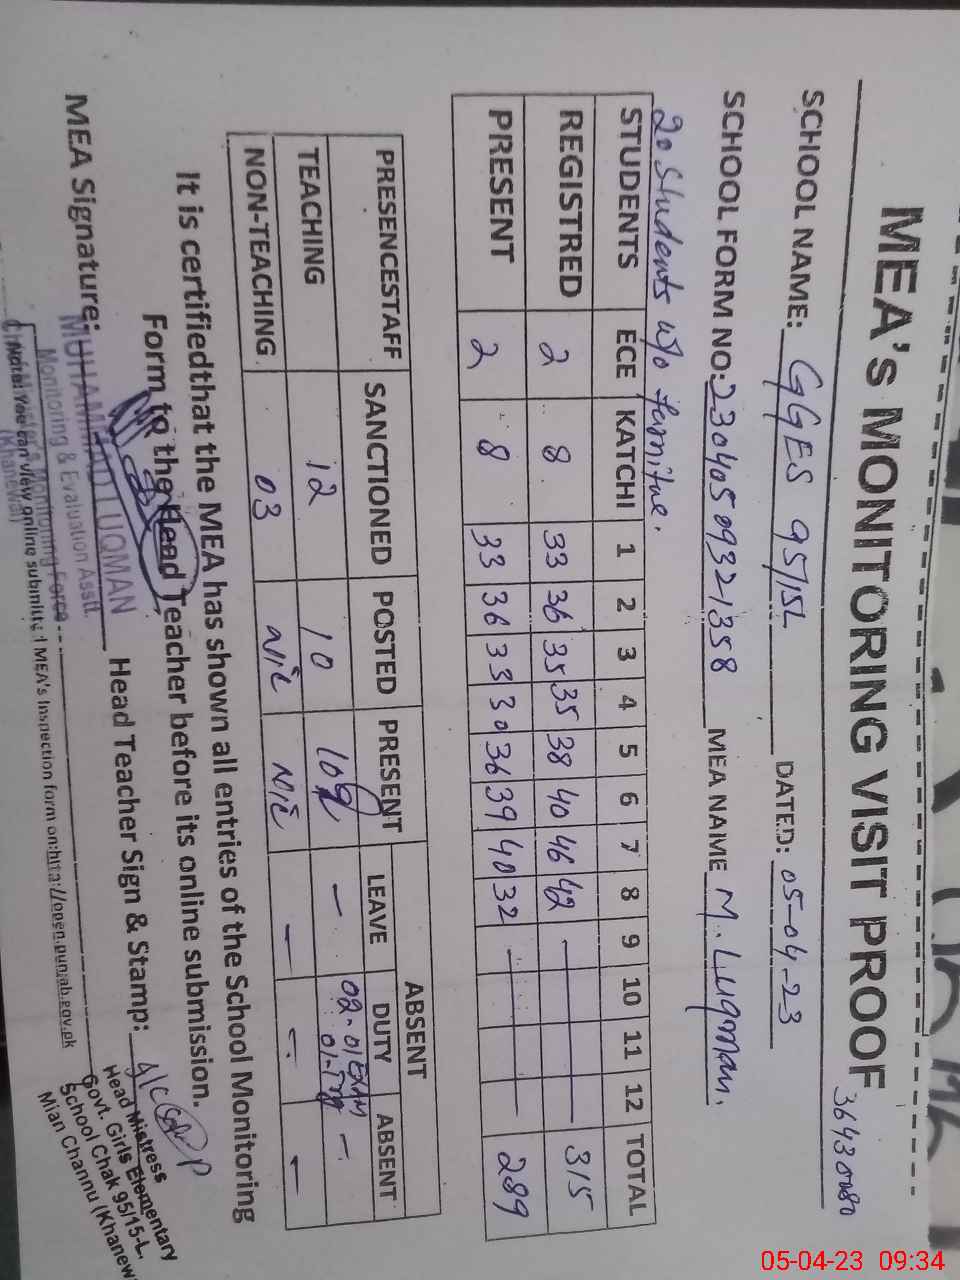 MEA's MONITORING VISIT PROOF
SCHOOL NAME: GGES 95/15L DATED: 05-04-23
SCHOOL FORM NO: 23040509321358 MEA NAME M. Luqman.
20 Students w/o furniture.
STUDENTS ECE KATCHI 1 2 3 4 5 6 7 8 9 10 11 12 TOTAL
REGISTRED 2 8 33 36 35 35 38 40 46 42 — 315
PRESENT 2 8 33 36 33 30 36 39 40 32 — 289
PRESENCESTAFF SANCTIONED POSTED PRESENT ABSENT
LEAVE DUTY ABSENT
TEACHING 12 10 — 02. 01 EXAM —
NON-TEACHING 03 Nil Nil — — —
It is certifiedthat the MEA has shown all entries of the School Monitoring
Form to the Head Teacher before its online submission.
MEA Signature: Head Teacher Sign & Stamp:
MUHAMMAD LUQMAN
Monitoring & Evaluation Asstt.
Monitoring Force
(Khanewal)
Head Mistress
Govt. Girls Elementary
School Chak 95/15-L.
Mian Channu (Khanew
Note: You can view online submitted MEA's Inspection form on:http://open.punjab.gov.pk
05-04-23 09:34